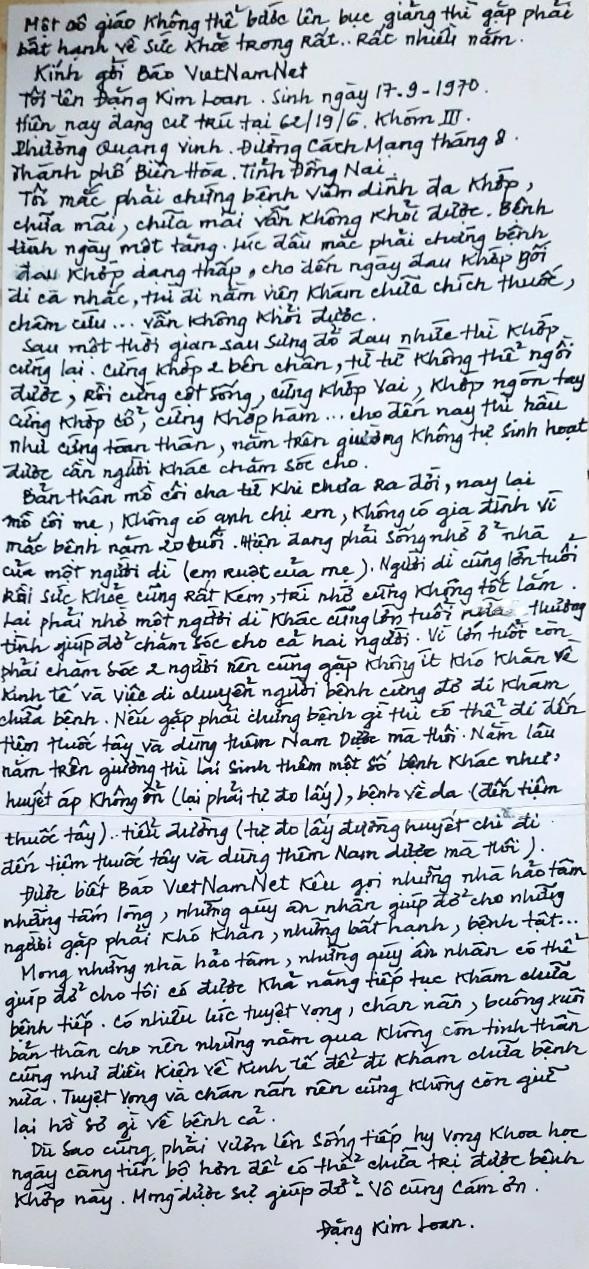 Một cô giáo không thể bước lên bục giảng thì gặp phải
bất hạnh về sức khỏe trong rất.. rất nhiều năm.
Kính gởi Báo VietNamNet
Tôi tên Đặng Kim Loan. Sinh ngày 17-9-1970.
Hiện nay đang cư trú tại 62/19/6. Khóm III.
Phường Quang Vinh. Đường Cách Mạng tháng 8.
Thành phố Biên Hòa. Tỉnh Đồng Nai.
Tôi mắc phải chứng bệnh viêm dính đa khớp,
chữa mãi, chữa mãi vẫn không khỏi được. Bệnh
tình ngày một tăng. Lúc đầu mắc phải chứng bệnh
đau khớp dạng thấp, cho đến ngày đau khớp gối
đi cà nhắc, thì đi nằm viện khám chữa chích thuốc,
châm cứu... vẫn không khỏi được.
Sau một thời gian sau sưng đỏ đau nhức thì khớp
cứng lại. Cứng khớp 2 bên chân, từ từ không thể ngồi
được, rồi cứng cột sống, cứng khớp vai, khớp ngón tay
cứng khớp cổ, cứng khớp hàm... cho đến nay thì hầu
như cứng toàn thân, nằm trên giường không tự sinh hoạt
được cần người khác chăm sóc cho.
Bản thân mồ côi cha từ khi chưa ra đời, nay lại
mồ côi mẹ, không có anh chị em, không có gia đình vì
mắc bệnh năm 20 tuổi. Hiện đang phải sống nhờ ở nhà
của một người dì (em ruột của mẹ). Người dì cũng lớn tuổi
rồi sức khỏe cũng rất kém, trí nhớ cũng không tốt lắm.
Lại phải nhờ một người dì khác cũng lớn tuổi nữa thương
tình giúp đỡ chăm sóc cho cả hai người. Vì lớn tuổi còn
phải chăm sóc 2 người nên cũng gặp không ít khó khăn về
kinh tế và việc di chuyển người bệnh cứng đơ đi khám
chữa bệnh. Nếu gặp phải chứng bệnh gì thì có thể đi đến
tiệm thuốc tây và dùng thêm Nam Dược mà thôi. Nằm lâu
năm trên giường thì lại sinh thêm một số bệnh khác như:
huyết áp không ổn (lại phải tự đo lấy), bệnh về da (đến tiệm
thuốc tây).. tiểu đường (tự đo lấy đường huyết chỉ đi
đến tiệm thuốc tây và dùng thêm Nam dược mà thôi).
Được biết Báo VietNamNet kêu gọi những nhà hảo tâm
những tấm lòng, những qúy ân nhân giúp đỡ cho những
người gặp phải khó khăn, những bất hạnh, bệnh tật...
Mong những nhà hảo tâm, những qúy ân nhân có thể
giúp đỡ cho tôi có được khả năng tiếp tục khám chữa
bệnh tiếp. Có nhiều lúc tuyệt vọng, chán nản, buông xuôi
bản thân cho nên những năm qua không còn tinh thần
cũng như điều kiện về kinh tế để đi khám chữa bệnh
nữa. Tuyệt vọng và chán nản nên cũng không còn giữ
lại hồ sơ gì về bệnh cả.
Dù sao cũng phải vươn lên sống tiếp hy vọng khoa học
ngày càng tiến bộ hơn để có thể chữa trị được bệnh
khớp này. Mong được sự giúp đỡ. Vô cùng cám ơn.
Đặng Kim Loan.